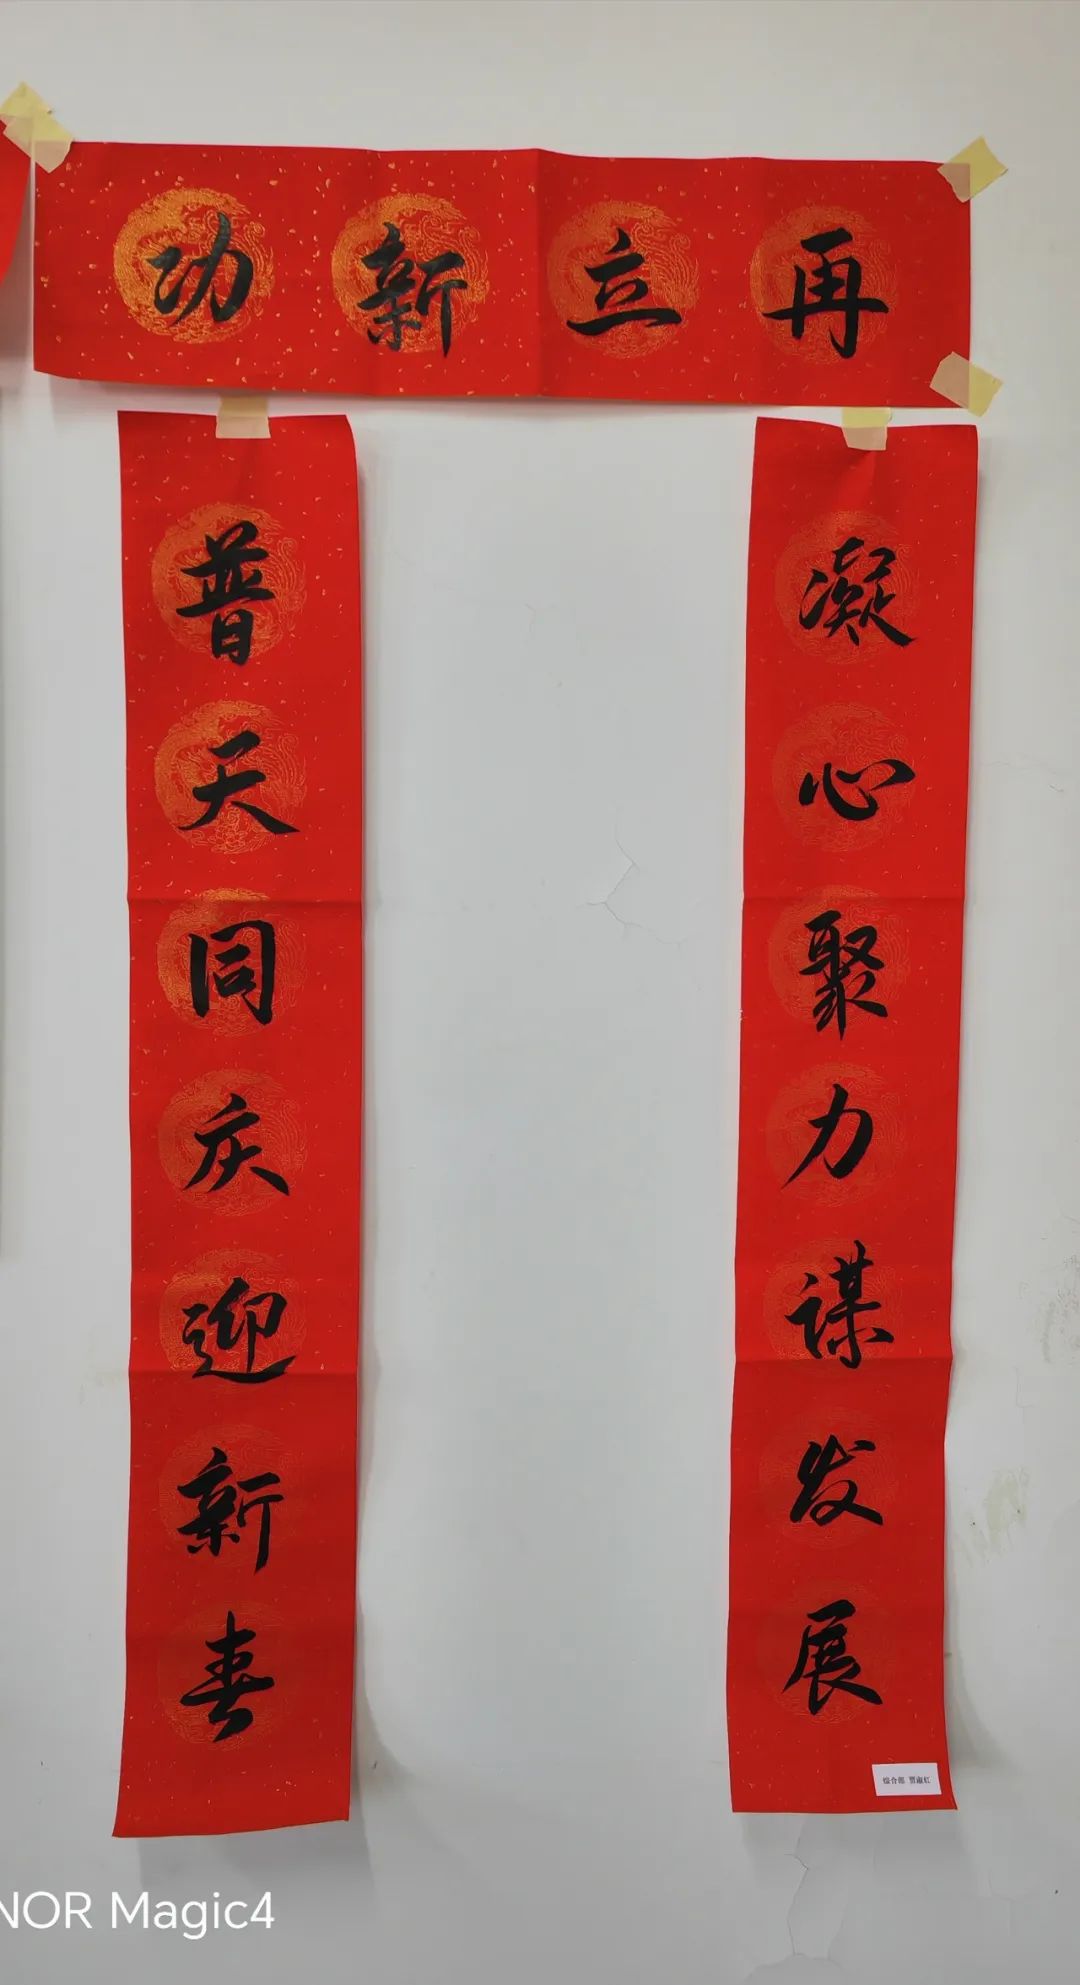 再立新功
凝心聚力谋发展
普天同庆迎新春
综合部 贾淑红
NOR Magic4